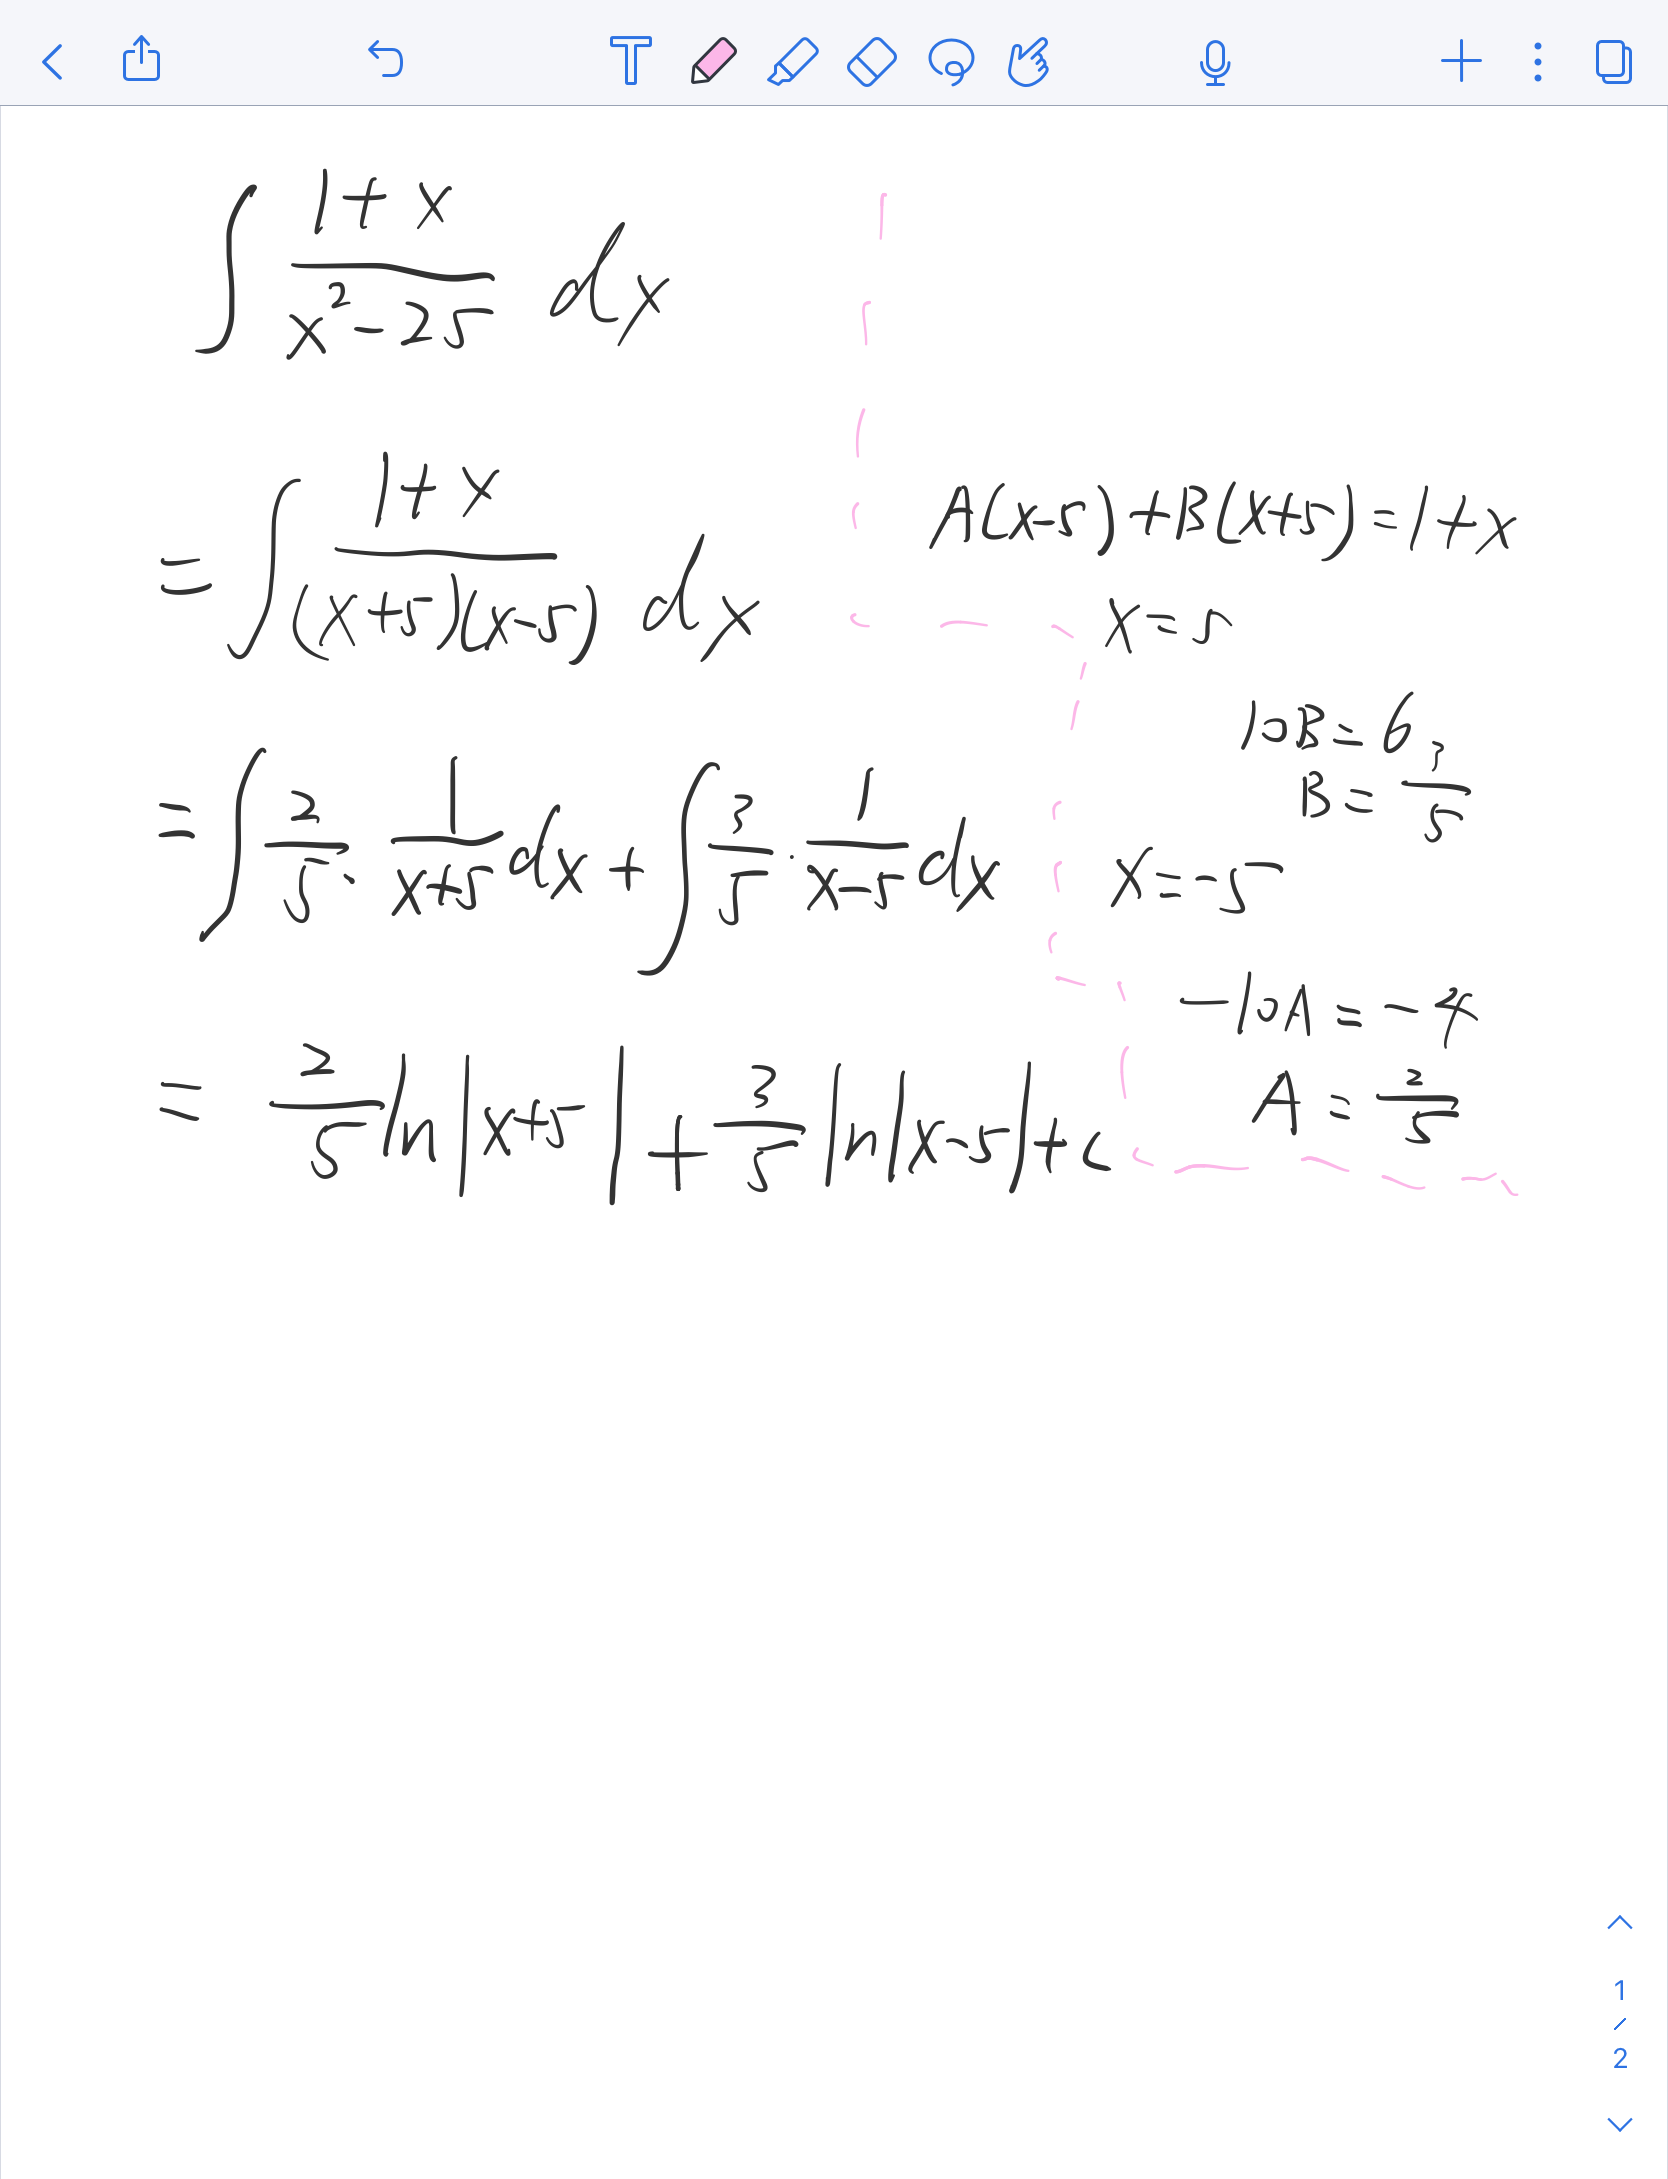 ∫ (1 + x)/(x² − 25) dx
= ∫ (1 + x)/((x+5)(x−5)) dx
= ∫ 2/5 · 1/(x+5) dx + ∫ 3/5 · 1/(x−5) dx
= 2/5 ln|x+5| + 3/5 ln|x−5| + c
A(x−5) + B(x+5) = 1 + x
x = 5
10B = 6
B = 3/5
x = −5
−10A = −4
A = 2/5
1
/
2